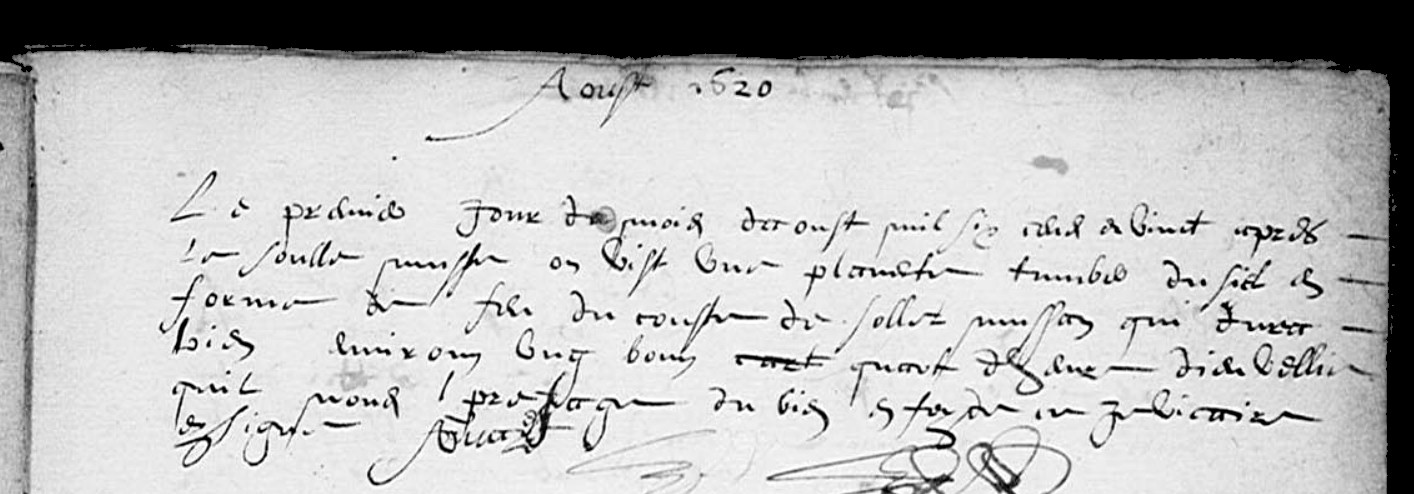 Aoust 1620
Le premier Jour du mois daoust mil six cens et vinct apres
le soulle mussse on vist une planette tumber du siel en
forme de feu du couste de sollez mussan qui dura
bien environ ung boun cart quart dheure dieu veille
quil nous presage du bien en foy de ce Je vicaire
ay signe